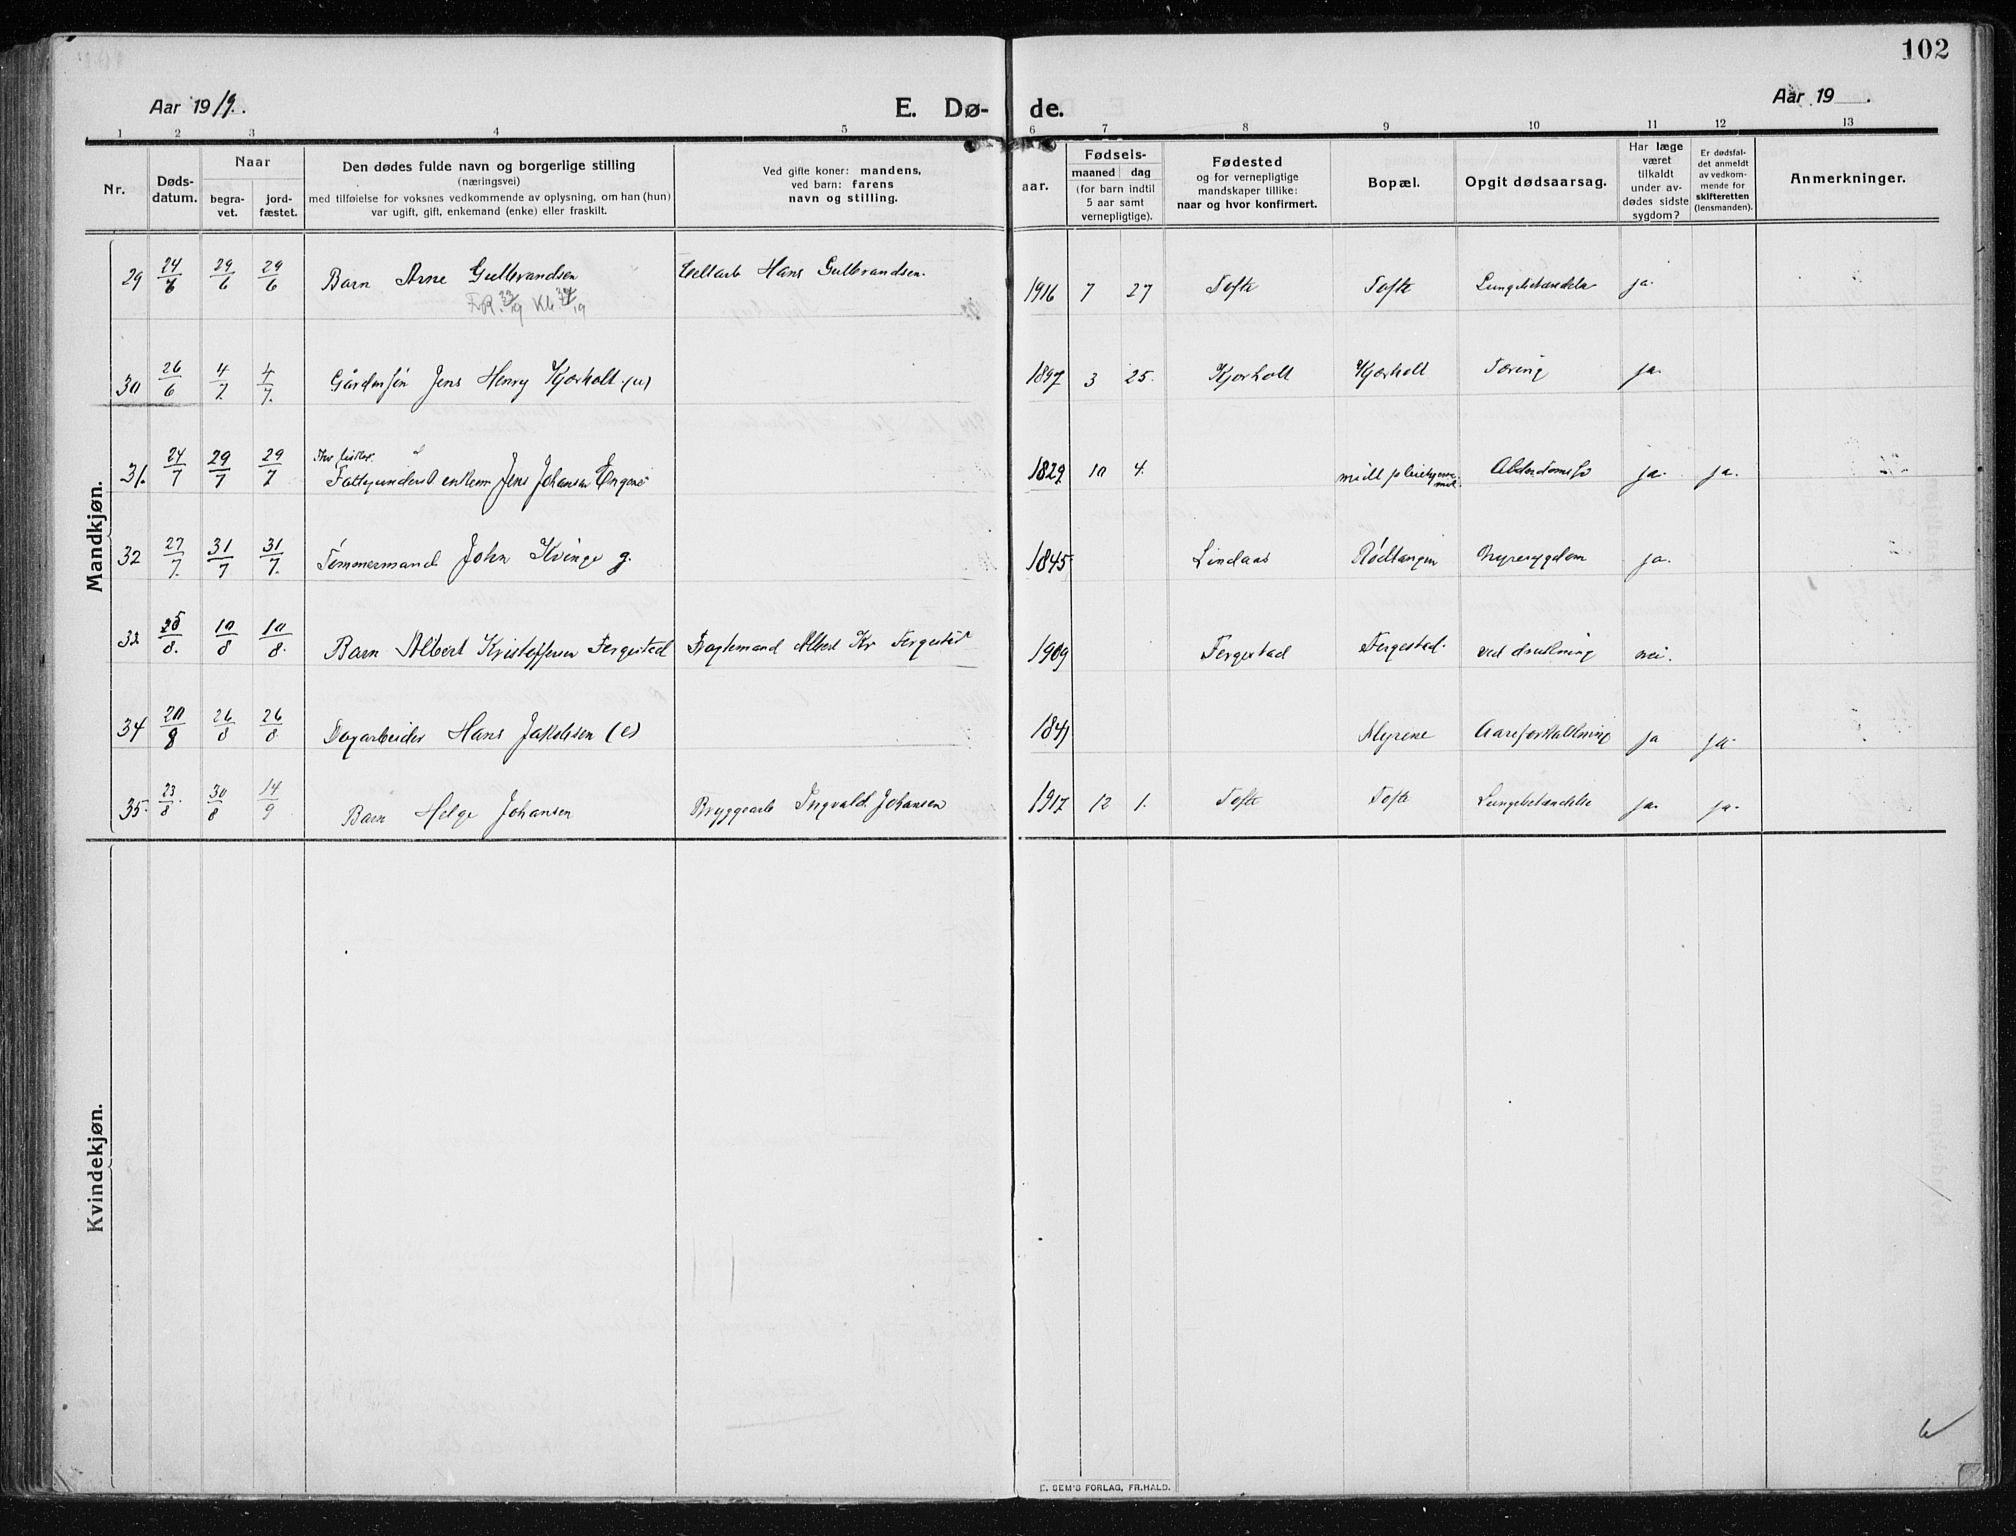 102
Aar 1919.
E. Dø-
de.
Aar 19 .
1 2 3 4 5 6 7 8 9 10 11 12 13
Nr.
Døds-
datum.
Naar
begra-
vet.
jord-
fæstet.
Den dødes fulde navn og borgerlige stilling
(næringsvei)
med tilføielse for voksnes vedkommende av oplysning, om han (hun)
var ugift, gift, enkemand (enke) eller fraskilt.
Ved gifte koner: mandens,
ved barn: farens
navn og stilling.
aar.
Fødsels-
maaned dag
(for barn indtil
5 aar samt
vernepligtige).
Fødested
og for vernepligtige
mandskaper tillike:
naar og hvor konfirmert.
Bopæl.
Opgit dødsaarsag.
Har læge
været
tilkaldt
under av-
dødes sidste
sygdom?
Er dødsfal-
det anmeldt
av vedkom-
mende for
skifteretten
(lensmanden).
Anmerkninger.
Mandkjøn.
29 24/6 29/6 29/6 Barn Arne Gulbrandsen Cellarb Hans Gulbrandsen. 1916 7 27 Tofte Tofte Lungebetændelse ja.
30 26/6 4/7. 4/7. Gårdersøn Jens Henry Kjærholt (u) 1897 3 25. Kjærholt Kjærholt Tæring ja.
31. 24/7 29/7 29/7 Fattigunderst enkem Jens Johansen 1829 10 4. ja. ja.
32 27/7. 31/7 31/7. Tømmermand John Kvinge g. 1845 Lindaas Rødtangen Nyresygdom ja.
32 25/8. 10/8 10/8. Barn Albert Kristoffersen Fergestad Albert Kr Fergestad 1909 Fergestad Fergestad. ved drukning nei.
34 20/8 26/8 26/8 Dagarbeider Hans Jakobsen (e) 1841 Myrene Aareforkalkning ja ja
35. 23/8. 30/8 14/9 Barn Helge Johansen Bryggearb Ingvald Johansen 1917 12 1. Tofte Tofte Lungebetændelse ja. ja.
Kvindekjøn.
E. SEM'S FORLAG, FR.HALD.